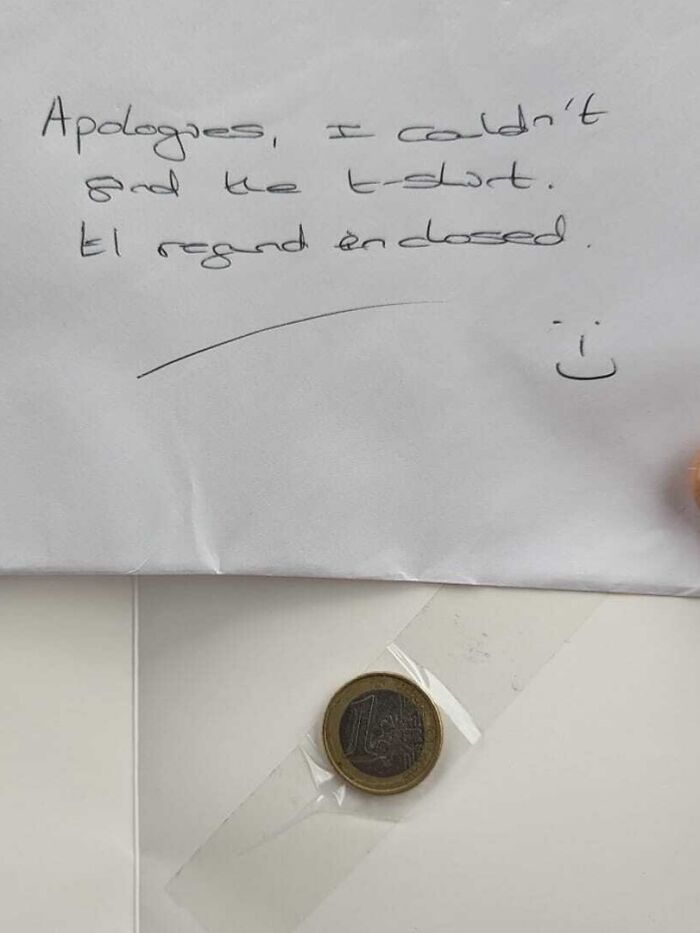 Apologies, I couldn't
find the t-shirt.
€1 refund enclosed.
1